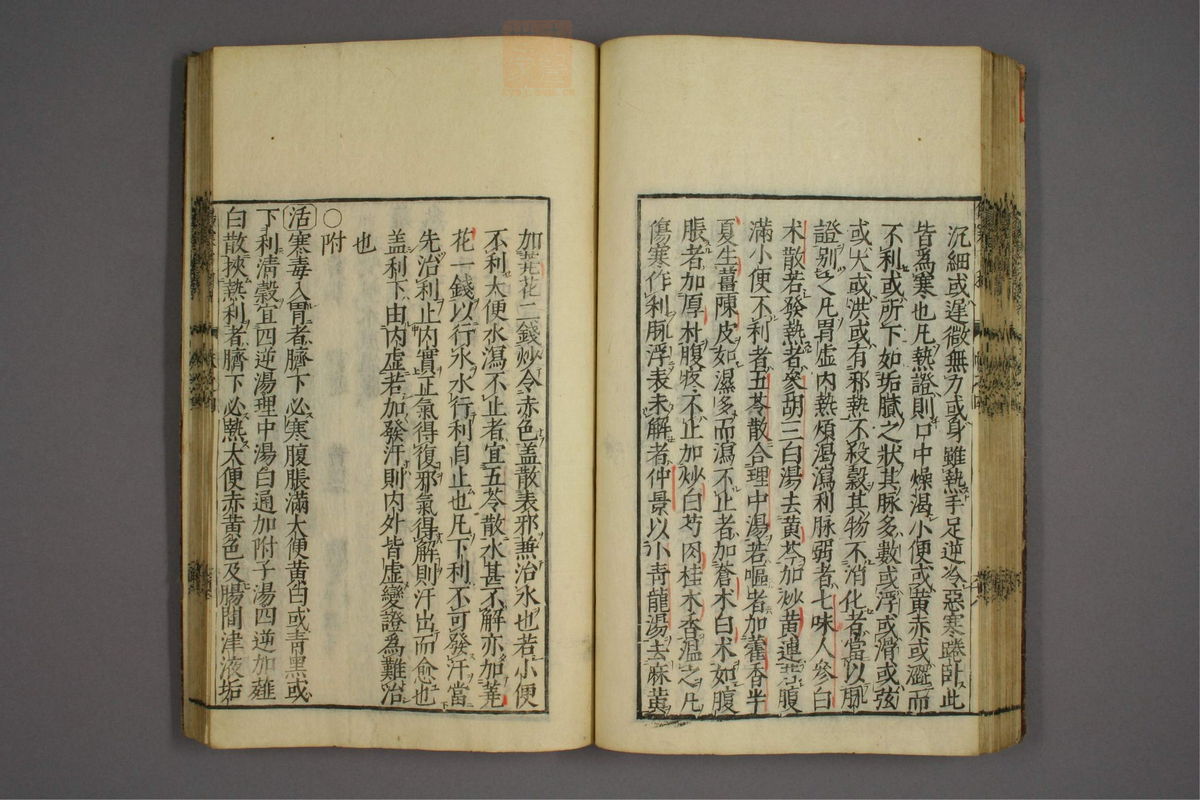 沉細或遲微無力或身雖熱手足逆冷惡寒踡卧此
皆爲寒也凡熱證則口中燥渴小便或黄赤或澀而
不利或所下如垢膩之状其脉多數或浮或滑或弦
或大或洪或有邪熱不殺穀其物不消化者當以脉
證別之凡胃虚内熱煩渴瀉利脉弱者七味人參白
术散若發熱者參胡三白湯去黄芩加炒黄連若腹
滿小便不利者五苓散合理中湯若嘔者加藿香半
夏生薑陳皮如濕多而瀉不止者加蒼术白术如腹
脹者加厚朴腹疼不止加炒白芍肉桂木香温之凡
傷寒作利脉浮表未解者仲景以小青龍湯去麻黄
加芫花二錢炒令赤色盖散表邪兼治水也若小便
不利大便水瀉不止者宜五苓散水甚不解亦加芫
花一錢以行水水行利自止也凡下利不可發汗當
先治利止内實正氣得復邪氣得解則汗出而愈也
盖利下由内虚若加發汗則内外皆虚變證爲難治
也
○附
活寒毒入胃者臍下必寒腹脹滿大便黄白或青黑或
下利清穀宜四逆湯理中湯白通加附子湯四逆加薤
白散挾熱利者臍下必熱大便赤黄色及腸間津液垢